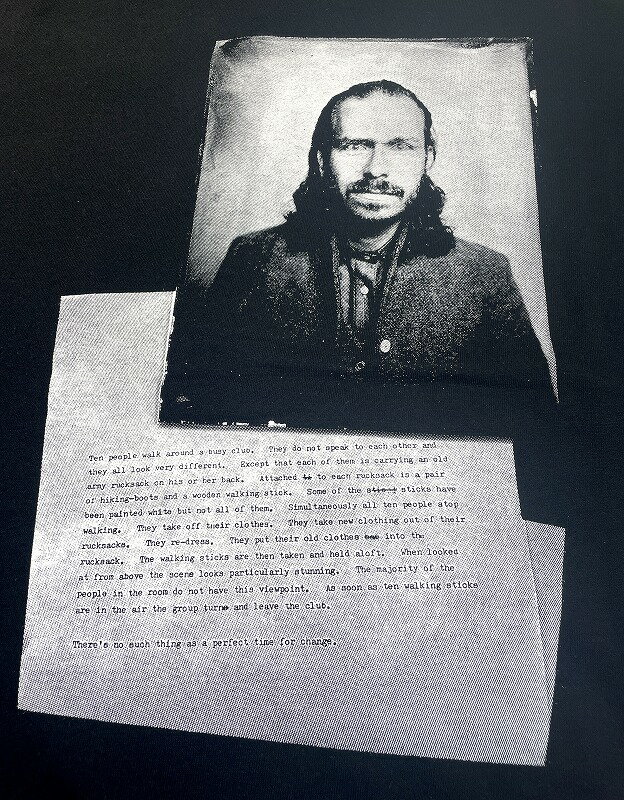 Ten people walk around a busy club. They do not speak to each other and
they all look very different. Except that each of them is carrying an old
army rucksack on his or her back. Attached to each rucksack is a pair
of hiking-boots and a wooden walking stick. Some of the sticks have
been painted white but not all of them. Simultaneously all ten people stop
walking. They take off their clothes. They take new clothing out of their
rucksacks. They re-dress. They put their old clothes into the
rucksack. The walking sticks are then taken and held aloft. When looked
at from above the scene looks particularly stunning. The majority of the
people in the room do not have this viewpoint. As soon as ten walking sticks
are in the air the group turns and leave the club.
There's no such thing as a perfect time for change.